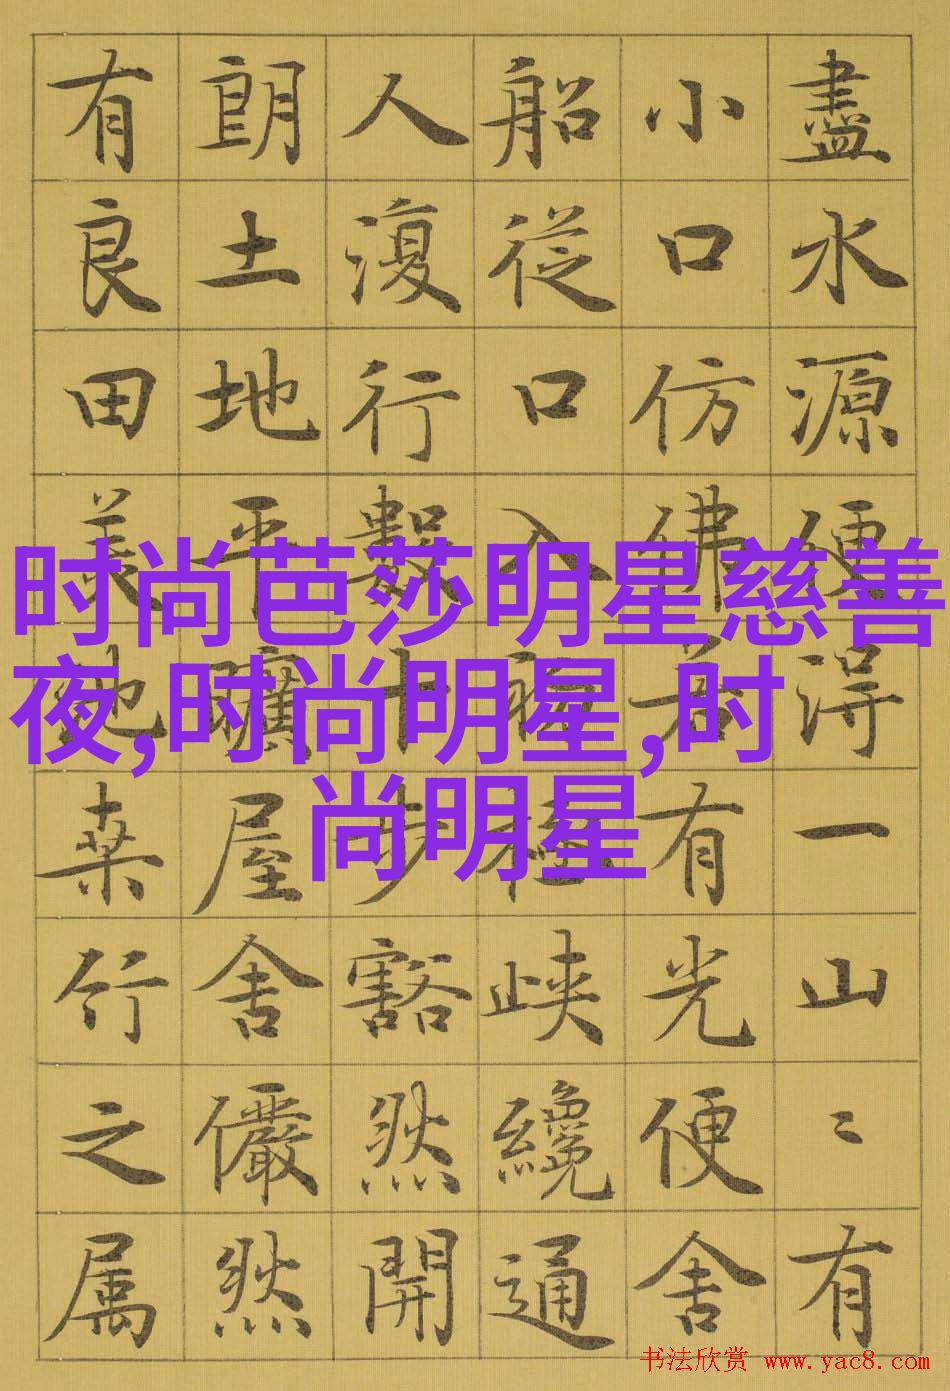 盡水源便得一山〻有
小口仿佛若有光便舍
船從口入初極峽纔通
人復行數十步豁然開
朗土地平曠屋舍儼然
有良田美池桑竹之属
时尚芭莎明星慈善
夜,时尚明星,时
尚明星
书法欣赏 www.yac8.com